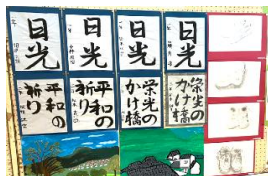 日光
日光
日光
日光
平和の
祈り
平和の
祈り
栄光の
かけ橋
栄光の
かけ橋